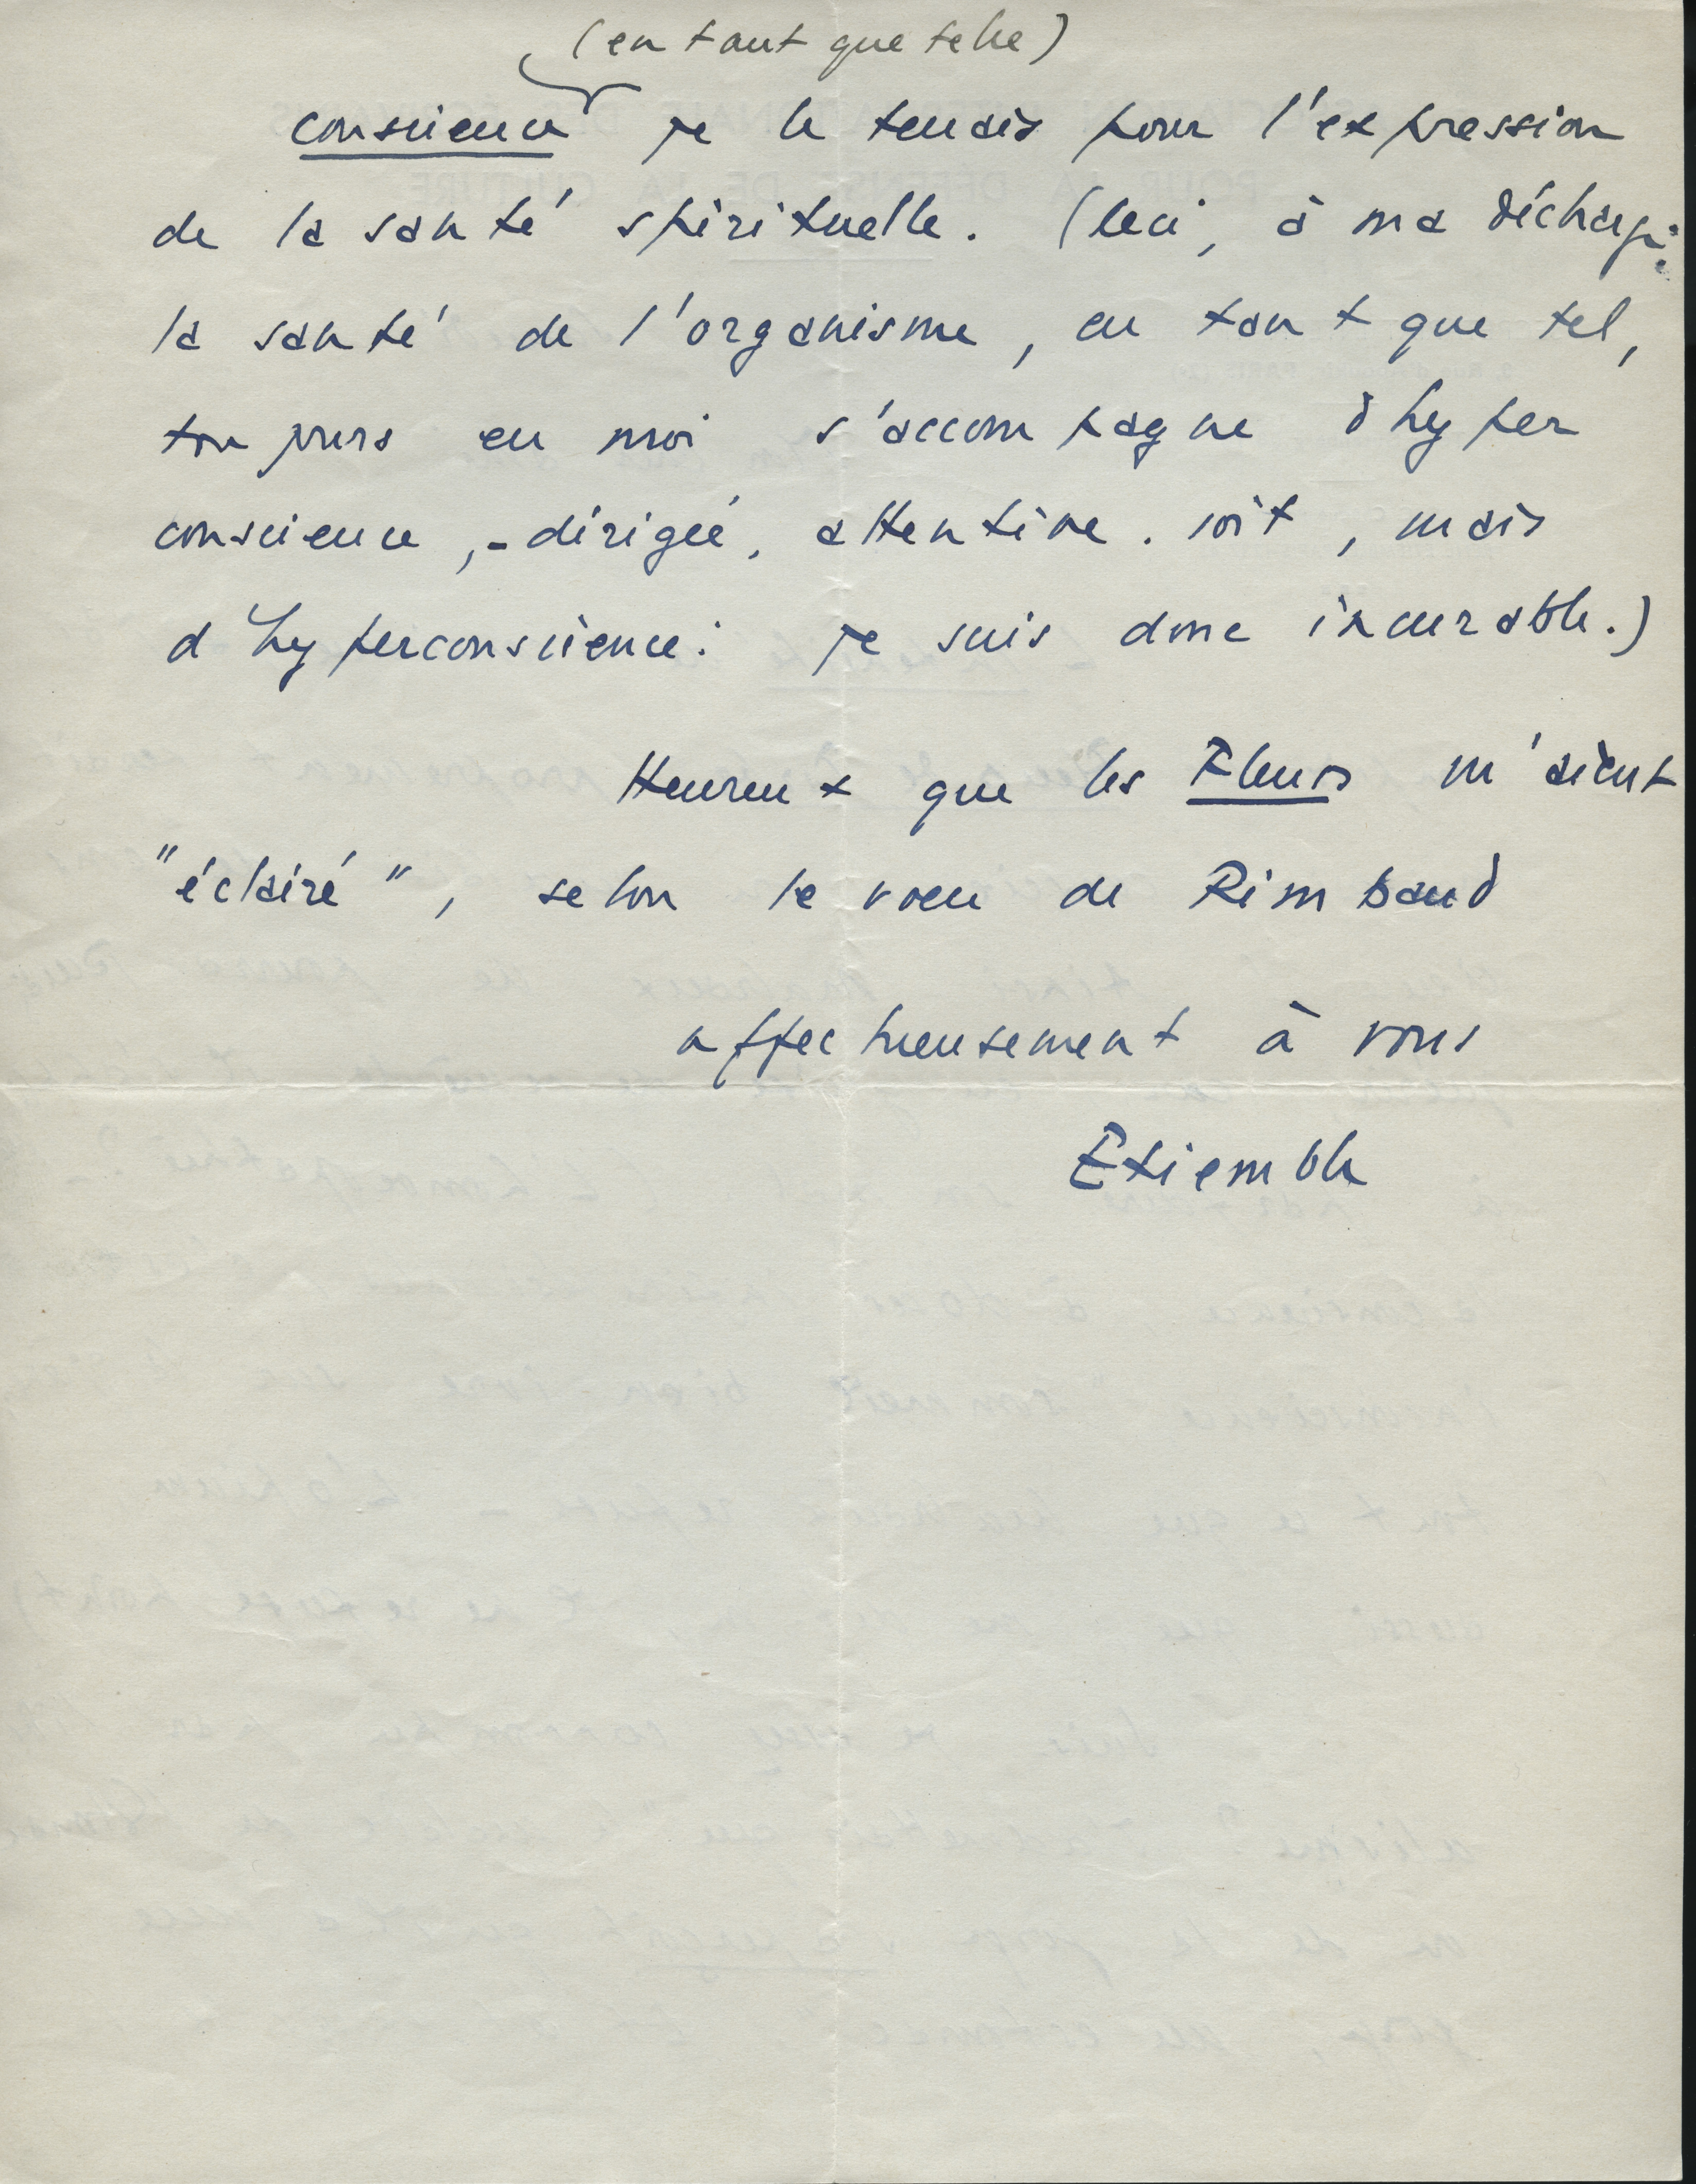 (en tant que telle)
conscience je le tenais pour l'expression
de la santé spirituelle. (Ceci, à ma décharge:
la santé de l'organisme, en tant que tel,
toujours en moi s'accompagne d'hyper
conscience, - dirigée, attentive. soit, mais
d'hyperconscience: je suis donc incurable.)
Heureux que les Fleurs m'aient
"éclairé", selon le voeu de Rimbaud
affectueusement à vous
Etiemble